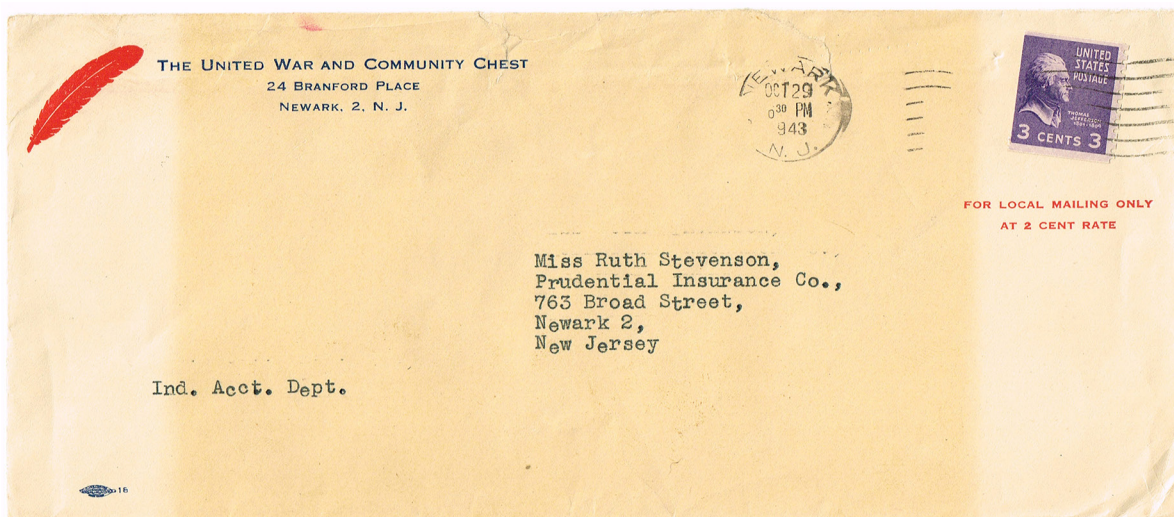 THE UNITED WAR AND COMMUNITY CHEST
24 BRANFORD PLACE
NEWARK, 2, N. J.
NEWARK
OCT 29
30 PM
943
N. J.
UNITED
STATES
POSTAGE
THOMAS
JEFFERSON
3 CENTS 3
FOR LOCAL MAILING ONLY
AT 2 CENT RATE
Miss Ruth Stevenson,
Prudential Insurance Co.,
763 Broad Street,
Newark 2,
New Jersey
Ind. Acct. Dept.
16